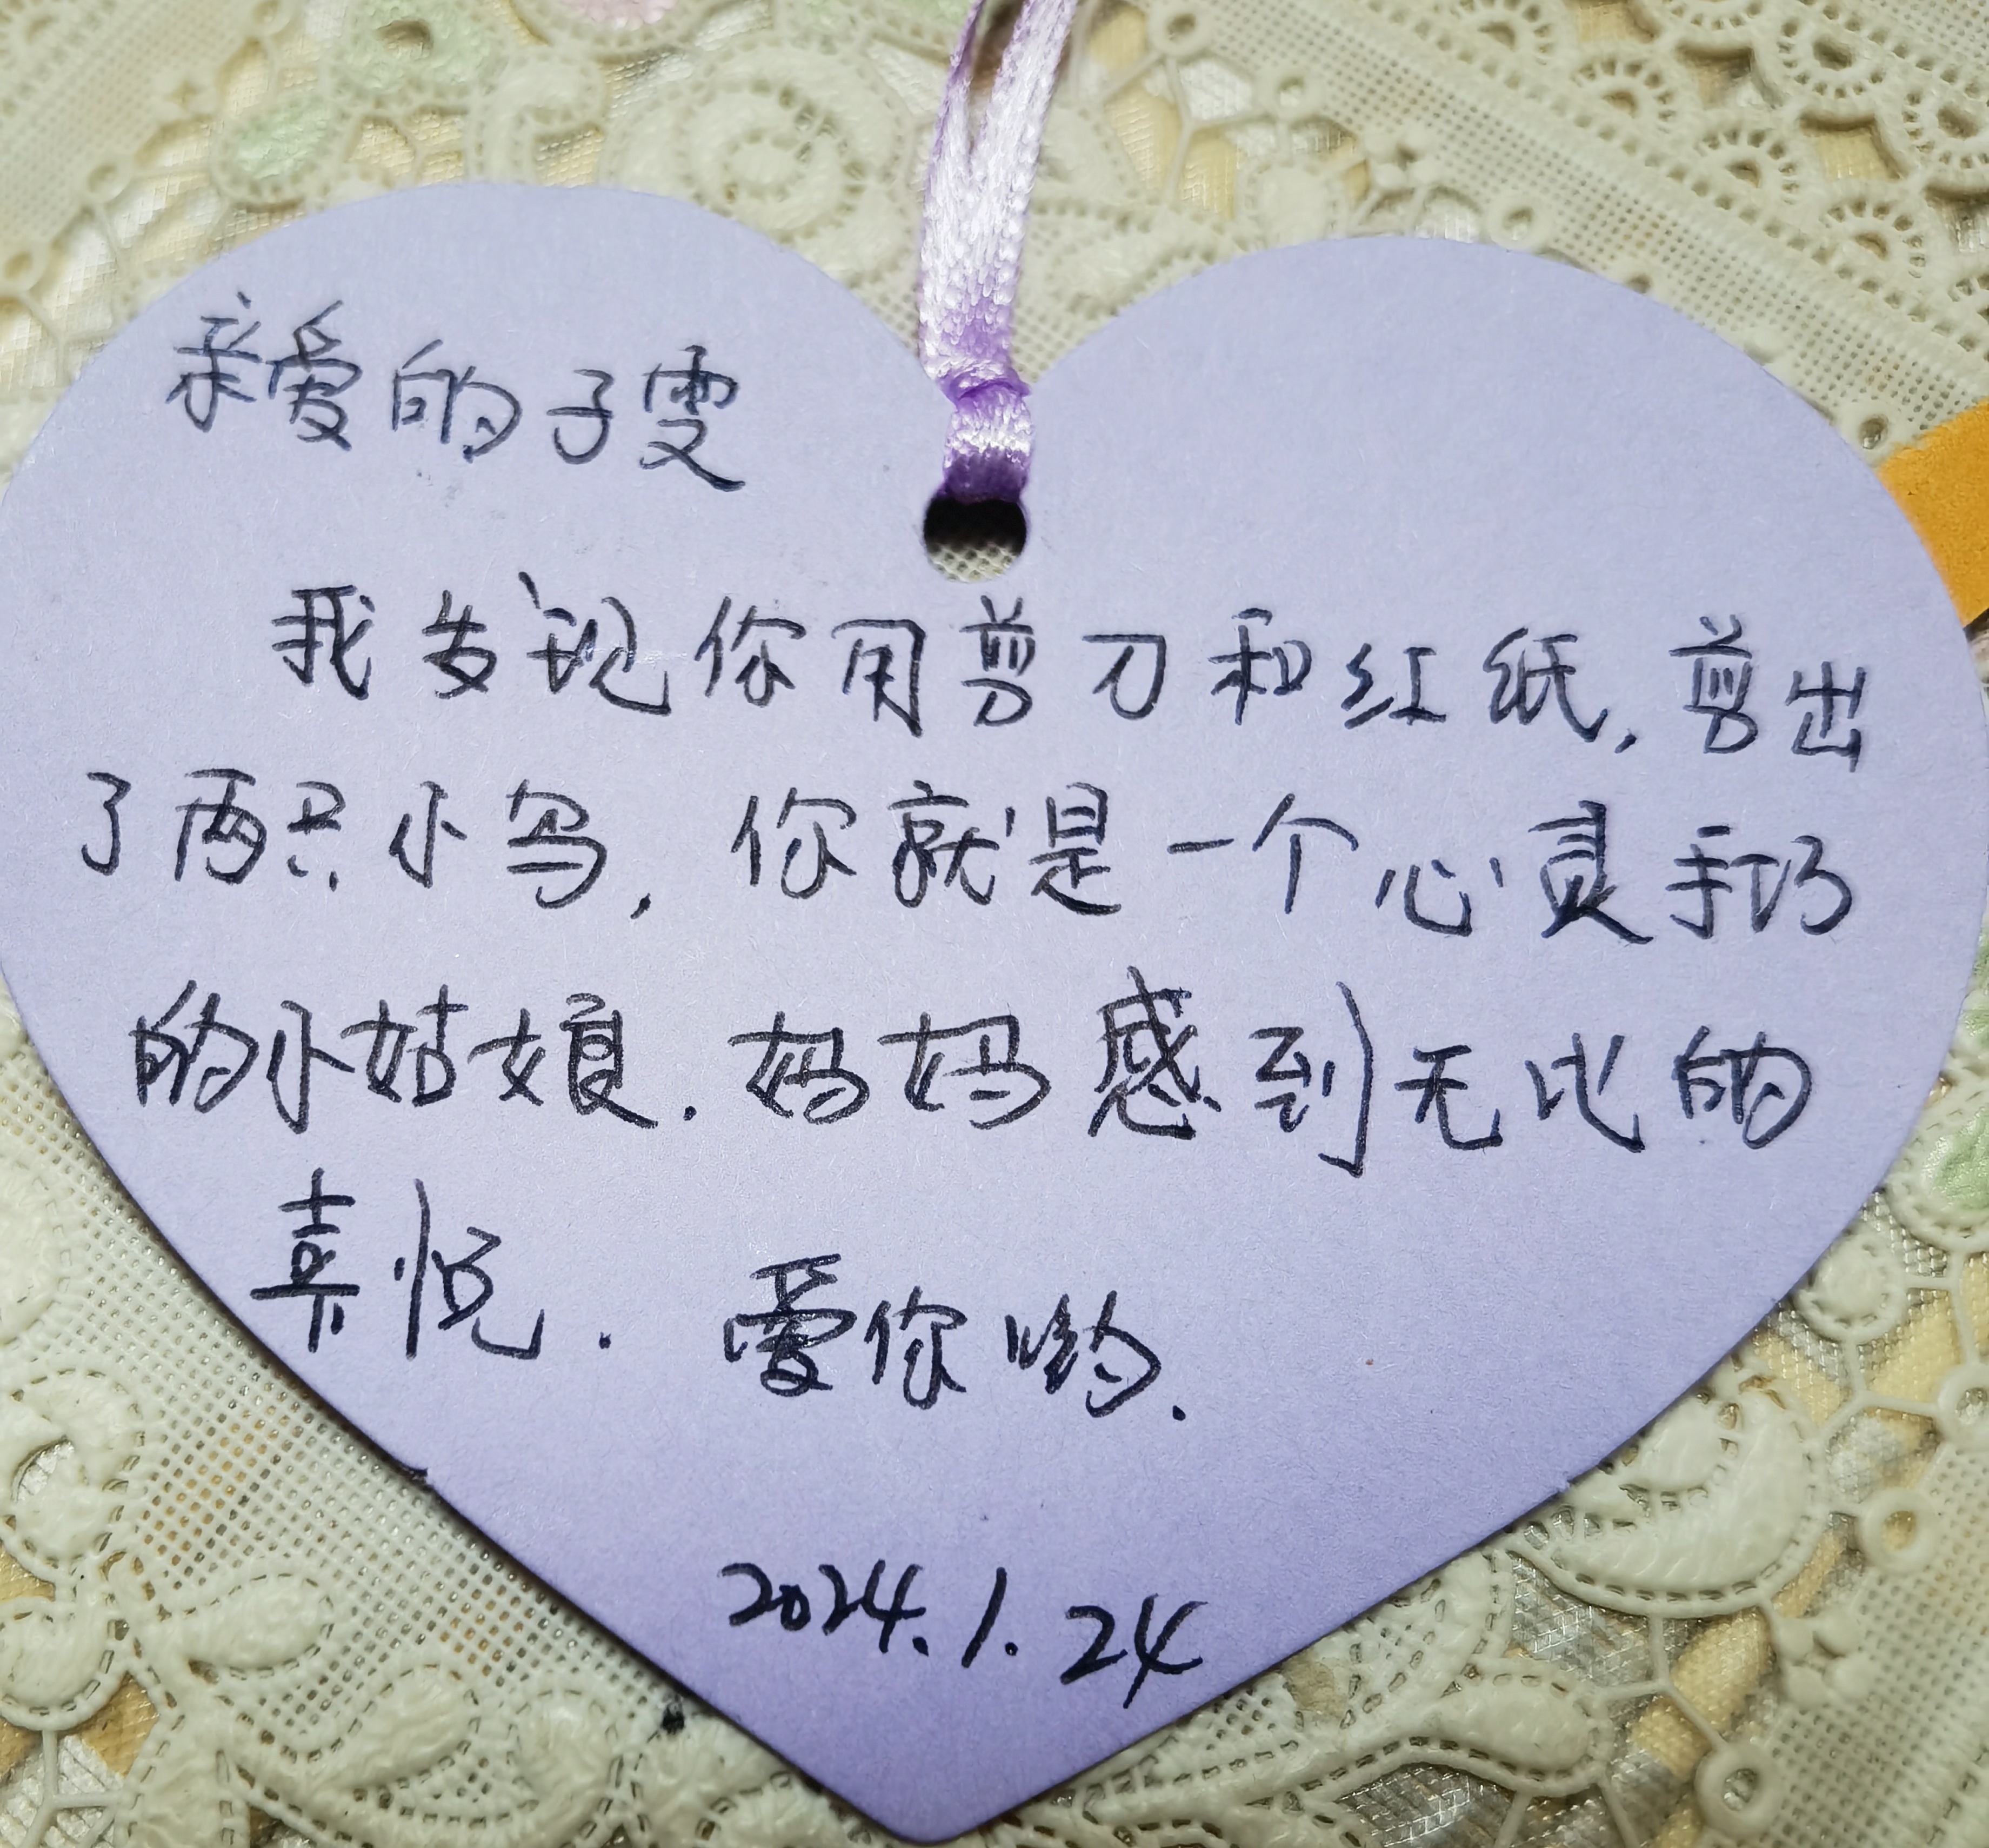 亲爱的子雯
我发现你用剪刀和红纸,剪出
了两只小鸟,你就是一个心灵手巧
的小姑娘.妈妈感到无比的
喜悦.爱你哟.
2024.1.24